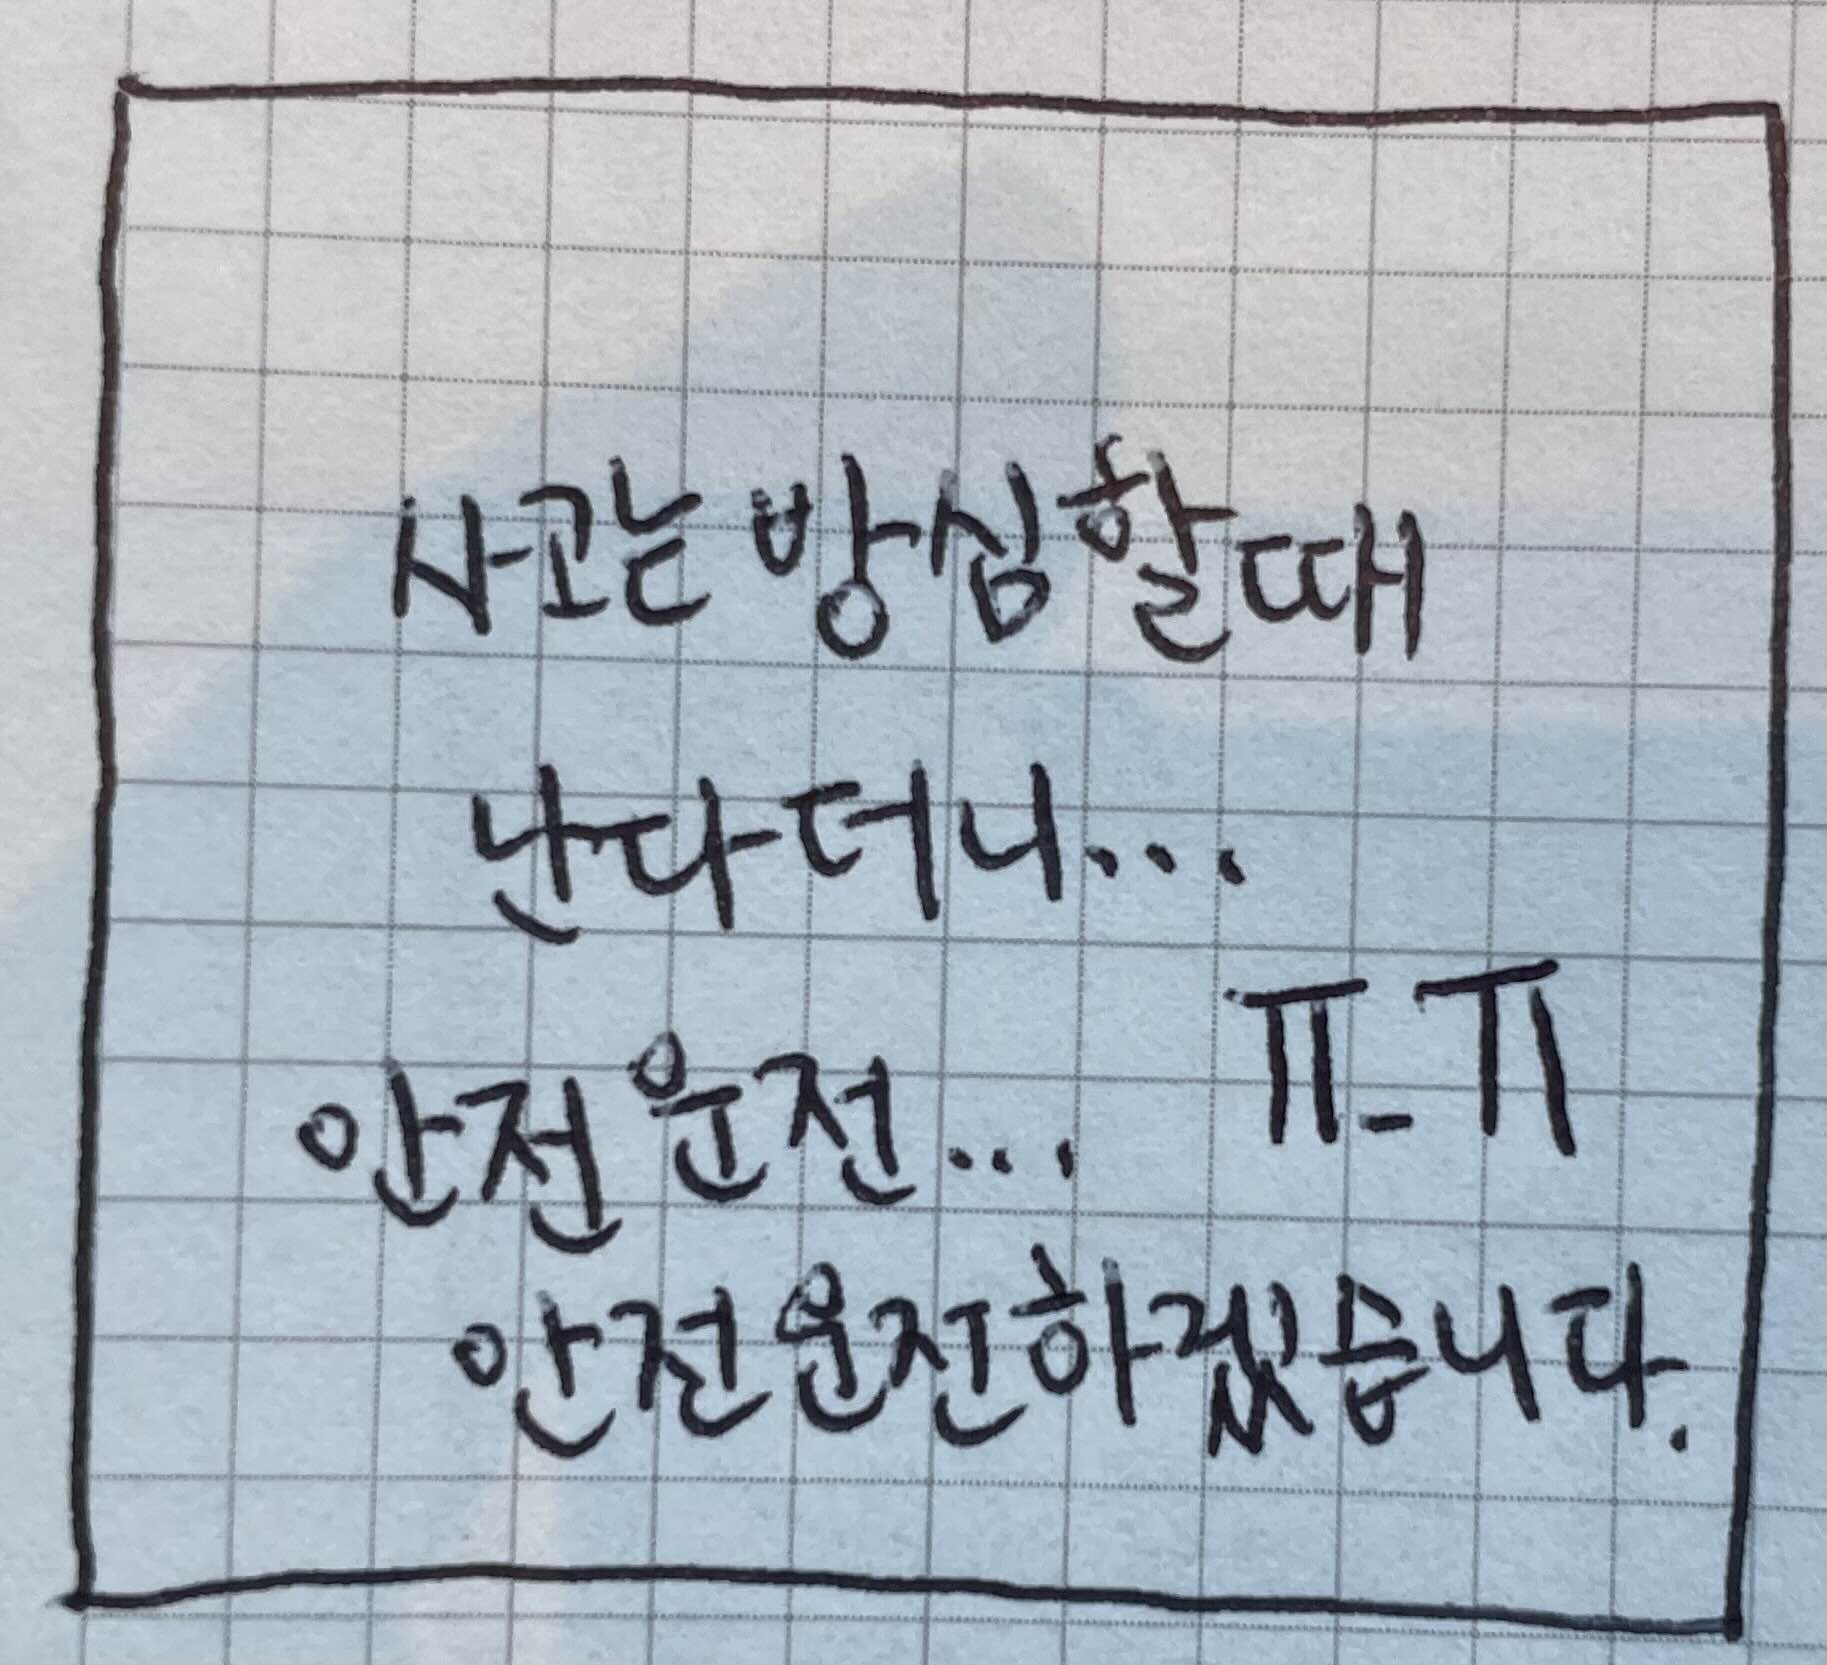 사고는 방심할때
난다더니...
안전운전... ㅠ_ㅠ
안전운전하겠습니다.